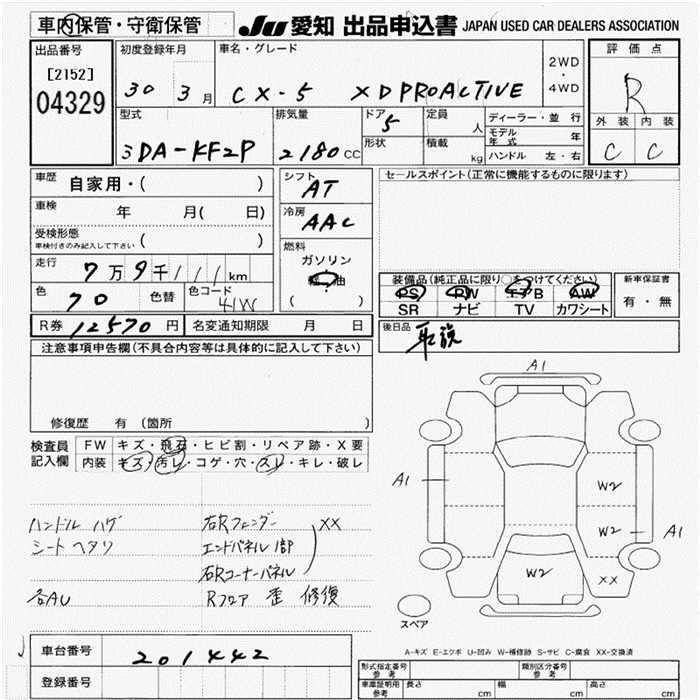 車内保管・守衛保管
JU 愛知 出品申込書 JAPAN USED CAR DEALERS ASSOCIATION
出品番号
[2152]
04329
初度登録年月
30 3月
車名・グレード
CX-5 XD PROACTIVE
2WD
・
4WD
評価点
R
外装 内装
C C
型式
3DA-KF2P
排気量
2180 CC
ドア
5
形状
定員
人
積載
kg
ディーラー・並行
モデル年式 年
ハンドル 左・右
車歴 自家用・( )
車検 年 月( 日)
受検形態
車検付きのみ記入して下さい ( )
走行 7万9千111km
色 70 色替 色コード 41W
R券 12570円 名変通知期限 月 日
シフト
AT
冷房
AAC
燃料
ガソリン
軽油
( )
セールスポイント(正常に機能するものに限ります)
装備品(純正品に限り○をつけてください)
PS PW エアB AW
SR ナビ TV カワシート
新車保証書
有・無
後日品
取説
注意事項申告欄(不具合内容等は具体的に記入して下さい)
修復歴 有 (箇所 )
検査員記入欄
FW キズ・飛石・ヒビ割・リペア跡・X要
内装 キズ・汚レ・コゲ・穴・スレ・キレ・破レ
ハンドル ハゲ
シート ヘタリ
各AU
右Rフェンダー XX
エンドパネル 1部
右Rコーナーパネル
Rフロア 歪 修復
A1
A1
W2
W2
A1
W2
XX
スペア
A-キズ E-エクボ U-凹み W-補修跡 S-サビ C-腐食 XX-交換済
車台番号 201442
登録番号
型式指定番号 参考
類別区分番号 参考
車庫証明用 参考 長さ cm 幅 cm 高さ cm